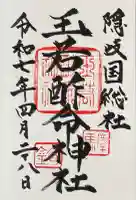 隠岐国総社
玉若酢命神社
令和七年四月二八日